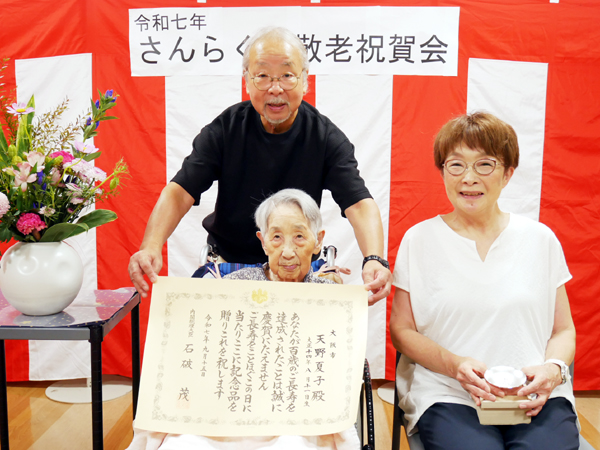 令和七年
さんらく 敬老祝賀会
大阪市
天野夏子殿
あなたが百歳のご長寿を
達成されたことは誠に
慶賀にたえません
ご長寿をことほぐこの日に
当たりここに記念品を
贈りこれを祝します
令和七年九月十五日
内閣総理大臣 石破 茂